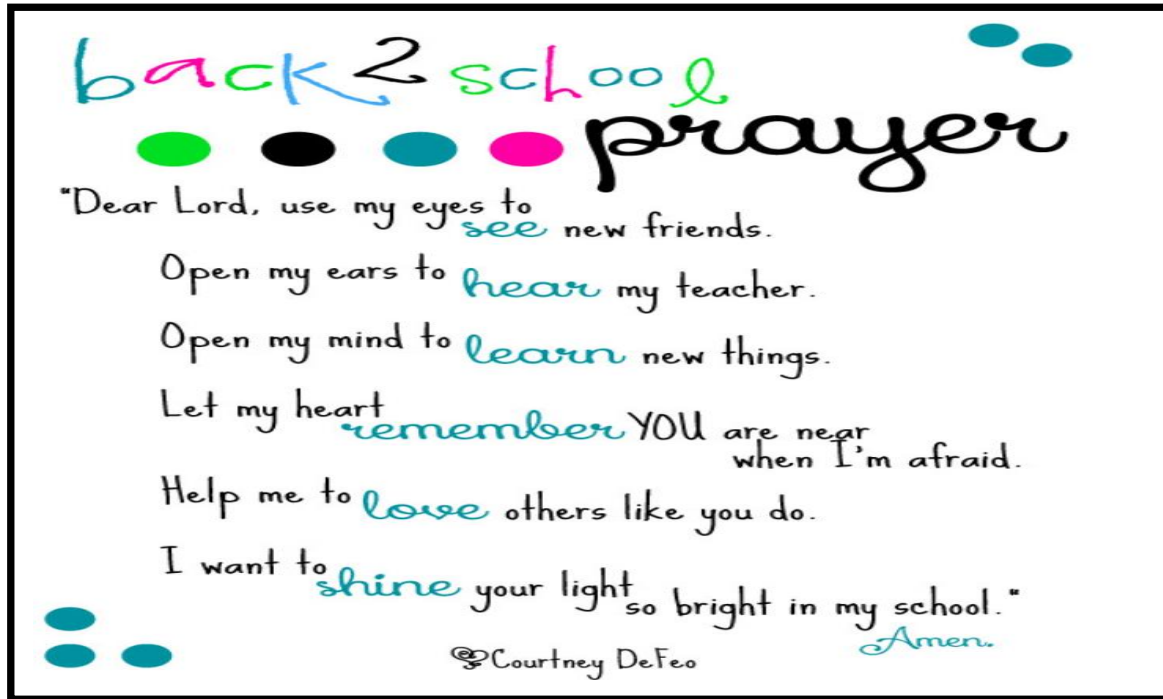 back 2 school
prayer
"Dear Lord, use my eyes to see new friends.
Open my ears to hear my teacher.
Open my mind to learn new things.
Let my heart remember YOU are near
when I'm afraid.
Help me to love others like you do.
I want to shine your light so bright in my school."
Amen.
Courtney DeFeo